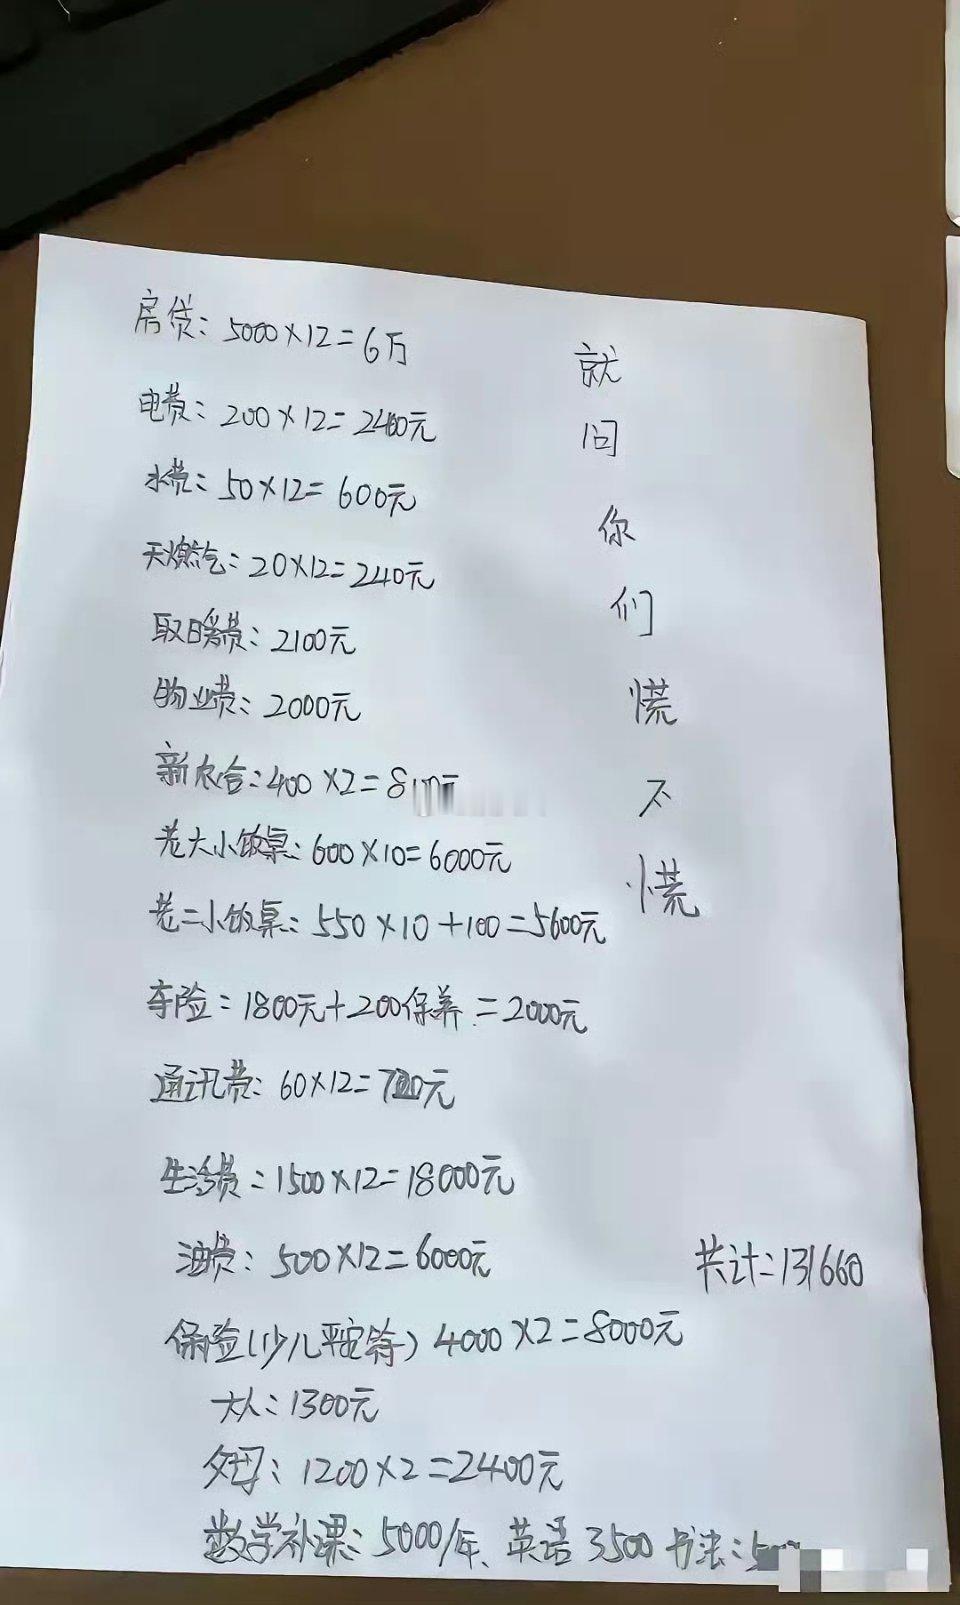 房贷：5000×12=6万
电费：200×12=2400元
水费：50×12=600元
天燃气：20×12=240元
取暖费：2100元
物业费：2000元
新农合：400×2=8
老大小饭桌：600×10=6000元
老二小饭桌：550×10+100=5600元
车险：1800元+200保养=2000元
通讯费：60×12=720元
生活费：1500×12=18000元
油费：500×12=6000元
保险(少儿平安等) 4000×2=8000元
大人：1300元
父母：1200×2=2400元
数学补课：5000/年、英语3500 书法：
就
问
你
们
慌
不
慌
共计：131660